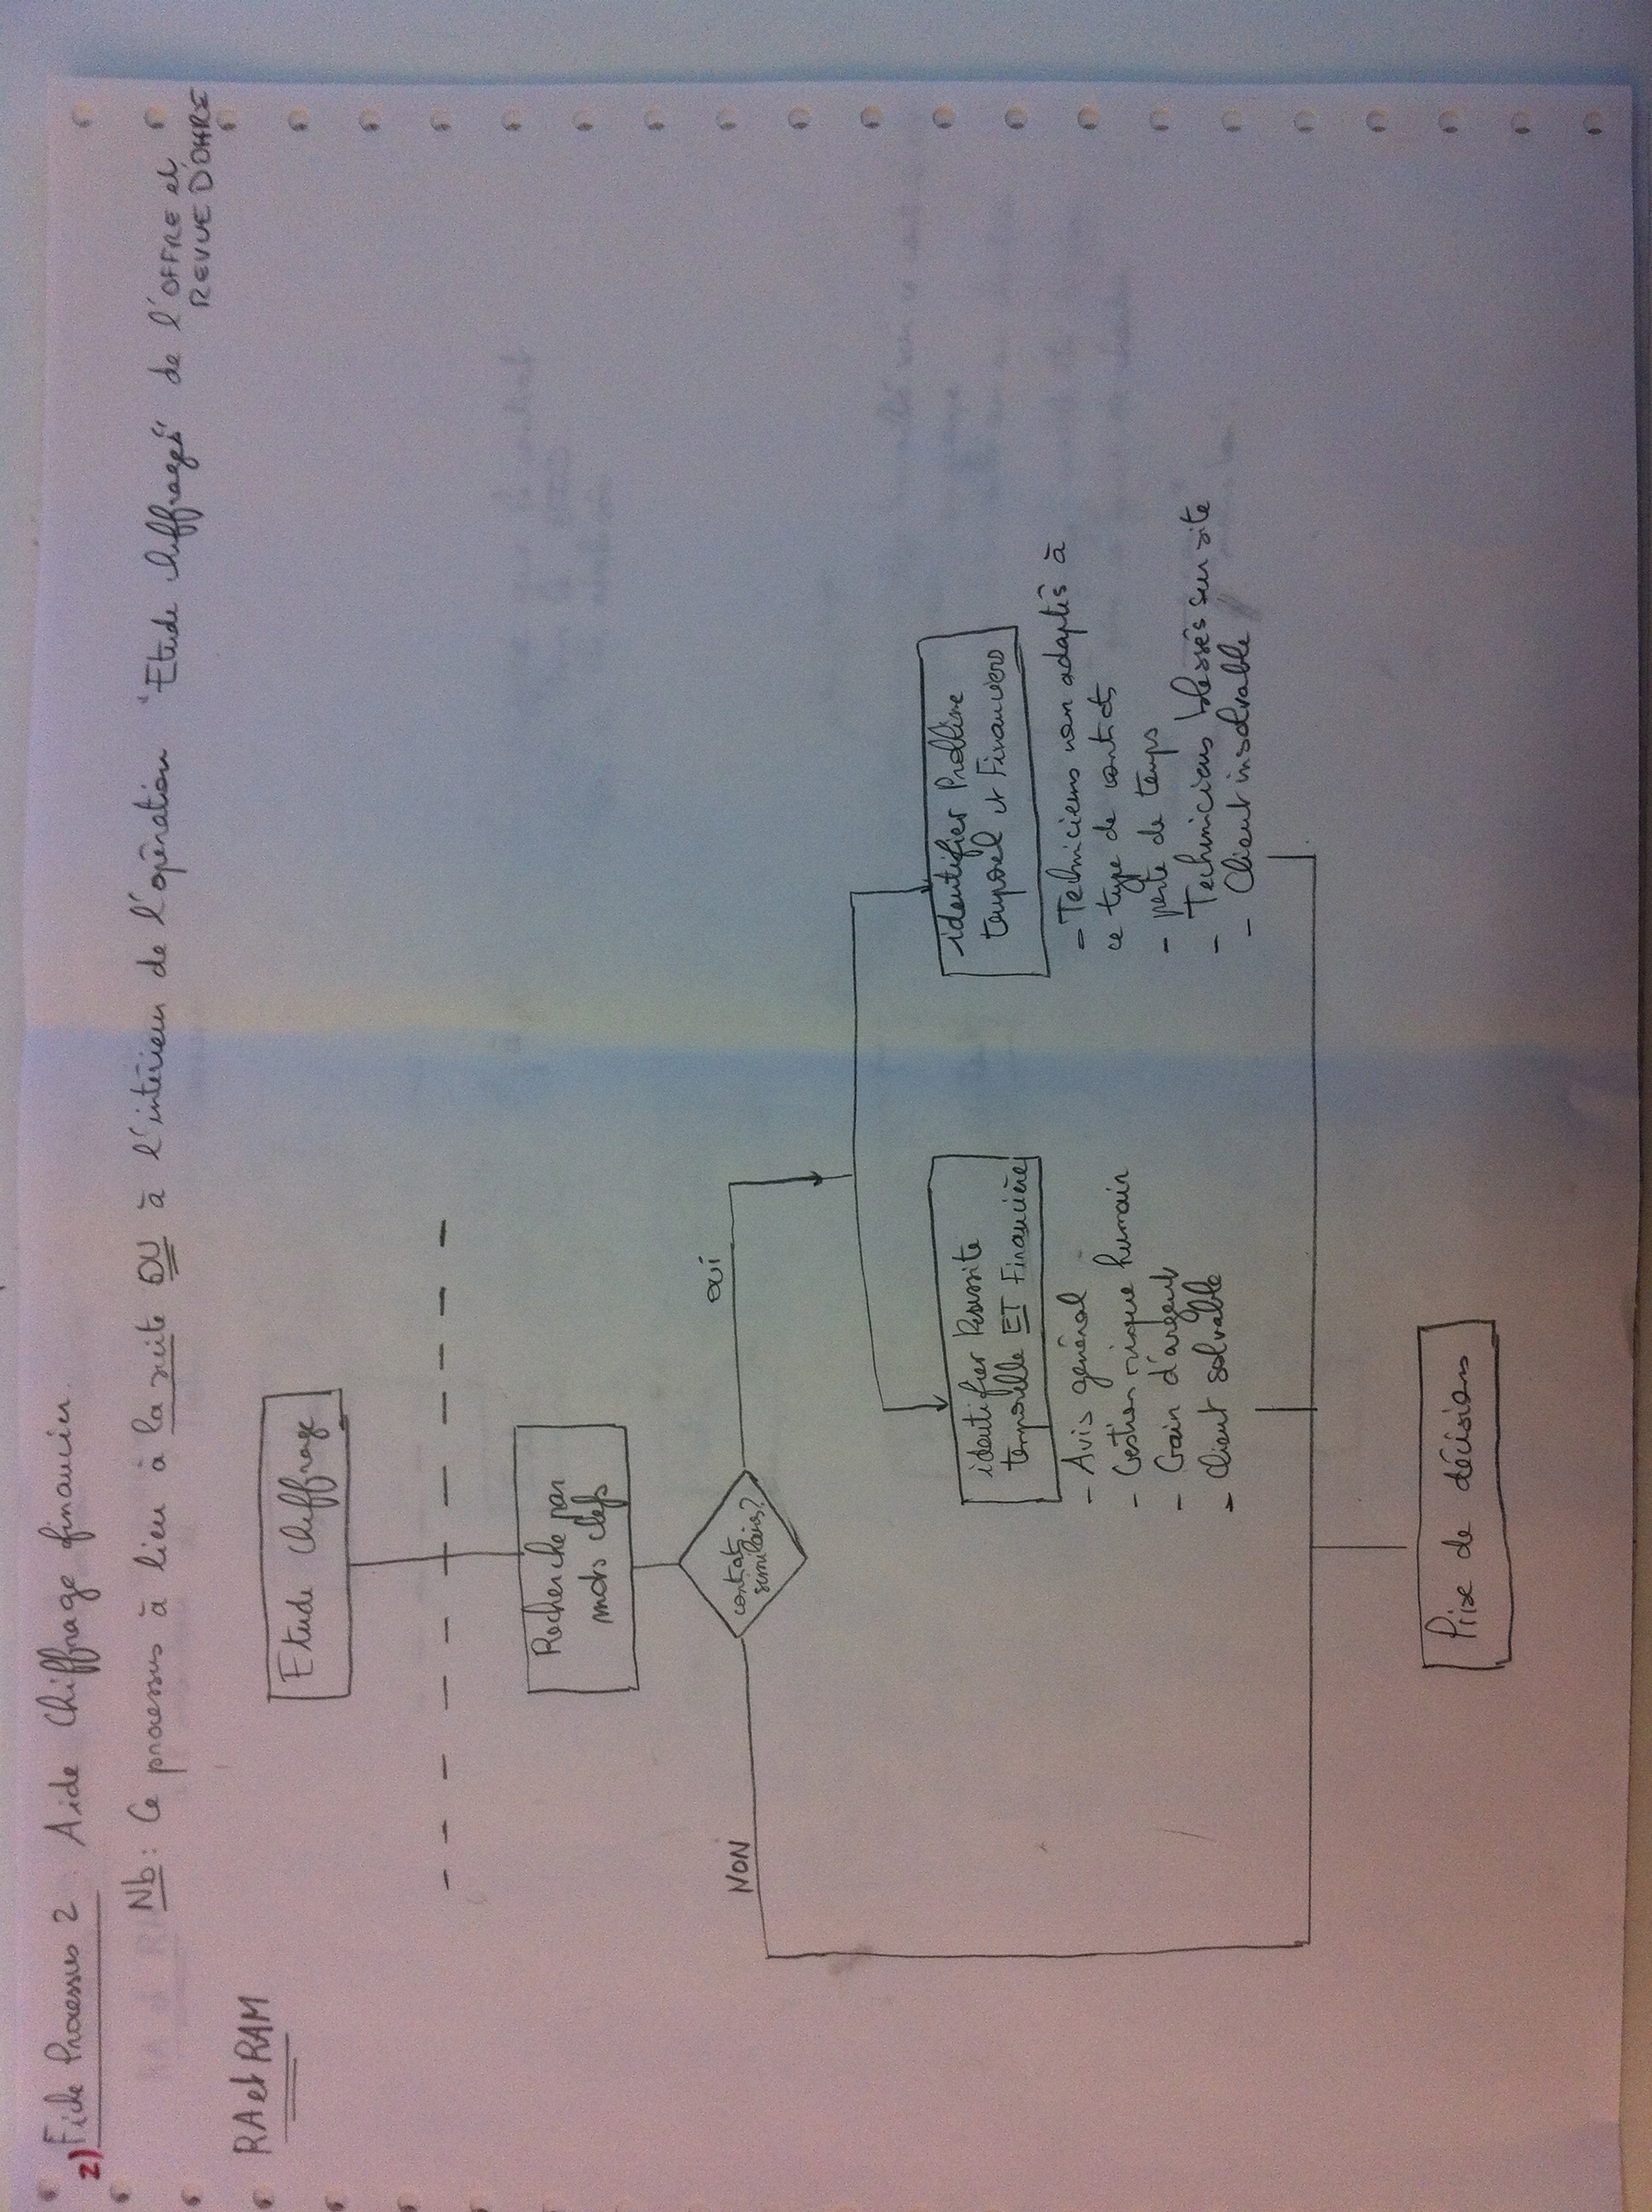 2) Fiche Processus 2 : Aide Chiffrage financier.
Nb : Ce processus à lieu à la suite OU à l'intérieur de l'opération "Etude Chiffrages" de l'OFFRE et
REVUE D'OFFRE
RA et RAM
Etude Chiffrage
Recherche par
mots clefs
contrat
similaires?
NON
OUI
identifier Réussite
temporelle ET Financière
- Avis général
- Gestion risque humain
- Gain d'argent
- client solvable
identifier Problème
temporel et Financiers
- Techniciens non adaptés à
ce type de contrats
- perte de temps
- Techniciens blessés sur site
- Client insolvable
Prise de décisions